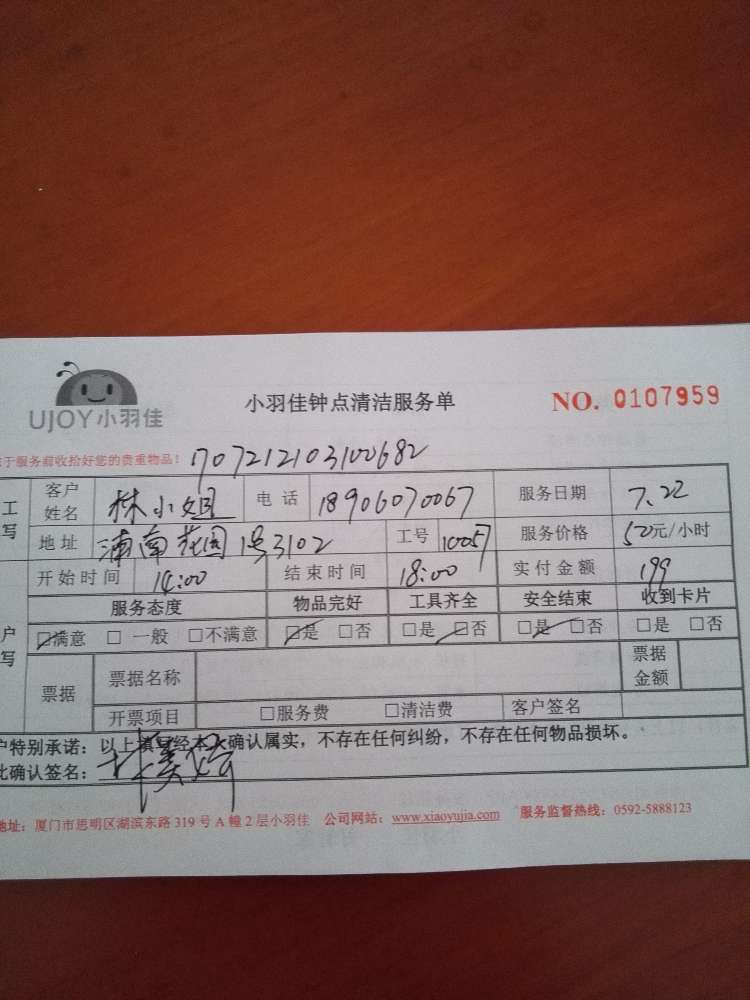 UJOY小羽佳
小羽佳钟点清洁服务单
NO. 0107959
于服务前收拾好您的贵重物品！ 707212103100682
工 客户姓名 林小姐 电话 18906070067 服务日期 7.22
写 地址 浦南花园1号3102 工号 10057 服务价格 50元/小时
开始时间 14:00 结束时间 18:00 实付金额 199
户 服务态度 物品完好 工具齐全 安全结束 收到卡片
写 □满意 □一般 □不满意 □是 □否 □是 □否 □是 □否 □是 □否
票据 票据名称 票据金额
开票项目 □服务费 □清洁费 客户签名
户特别承诺：以上填写经本人确认属实，不存在任何纠纷，不存在任何物品损坏。
此确认签名：
地址：厦门市思明区湖滨东路 319 号 A 幢 2 层小羽佳 公司网站：www.xiaoyujia.com 服务监督热线：0592-5888123